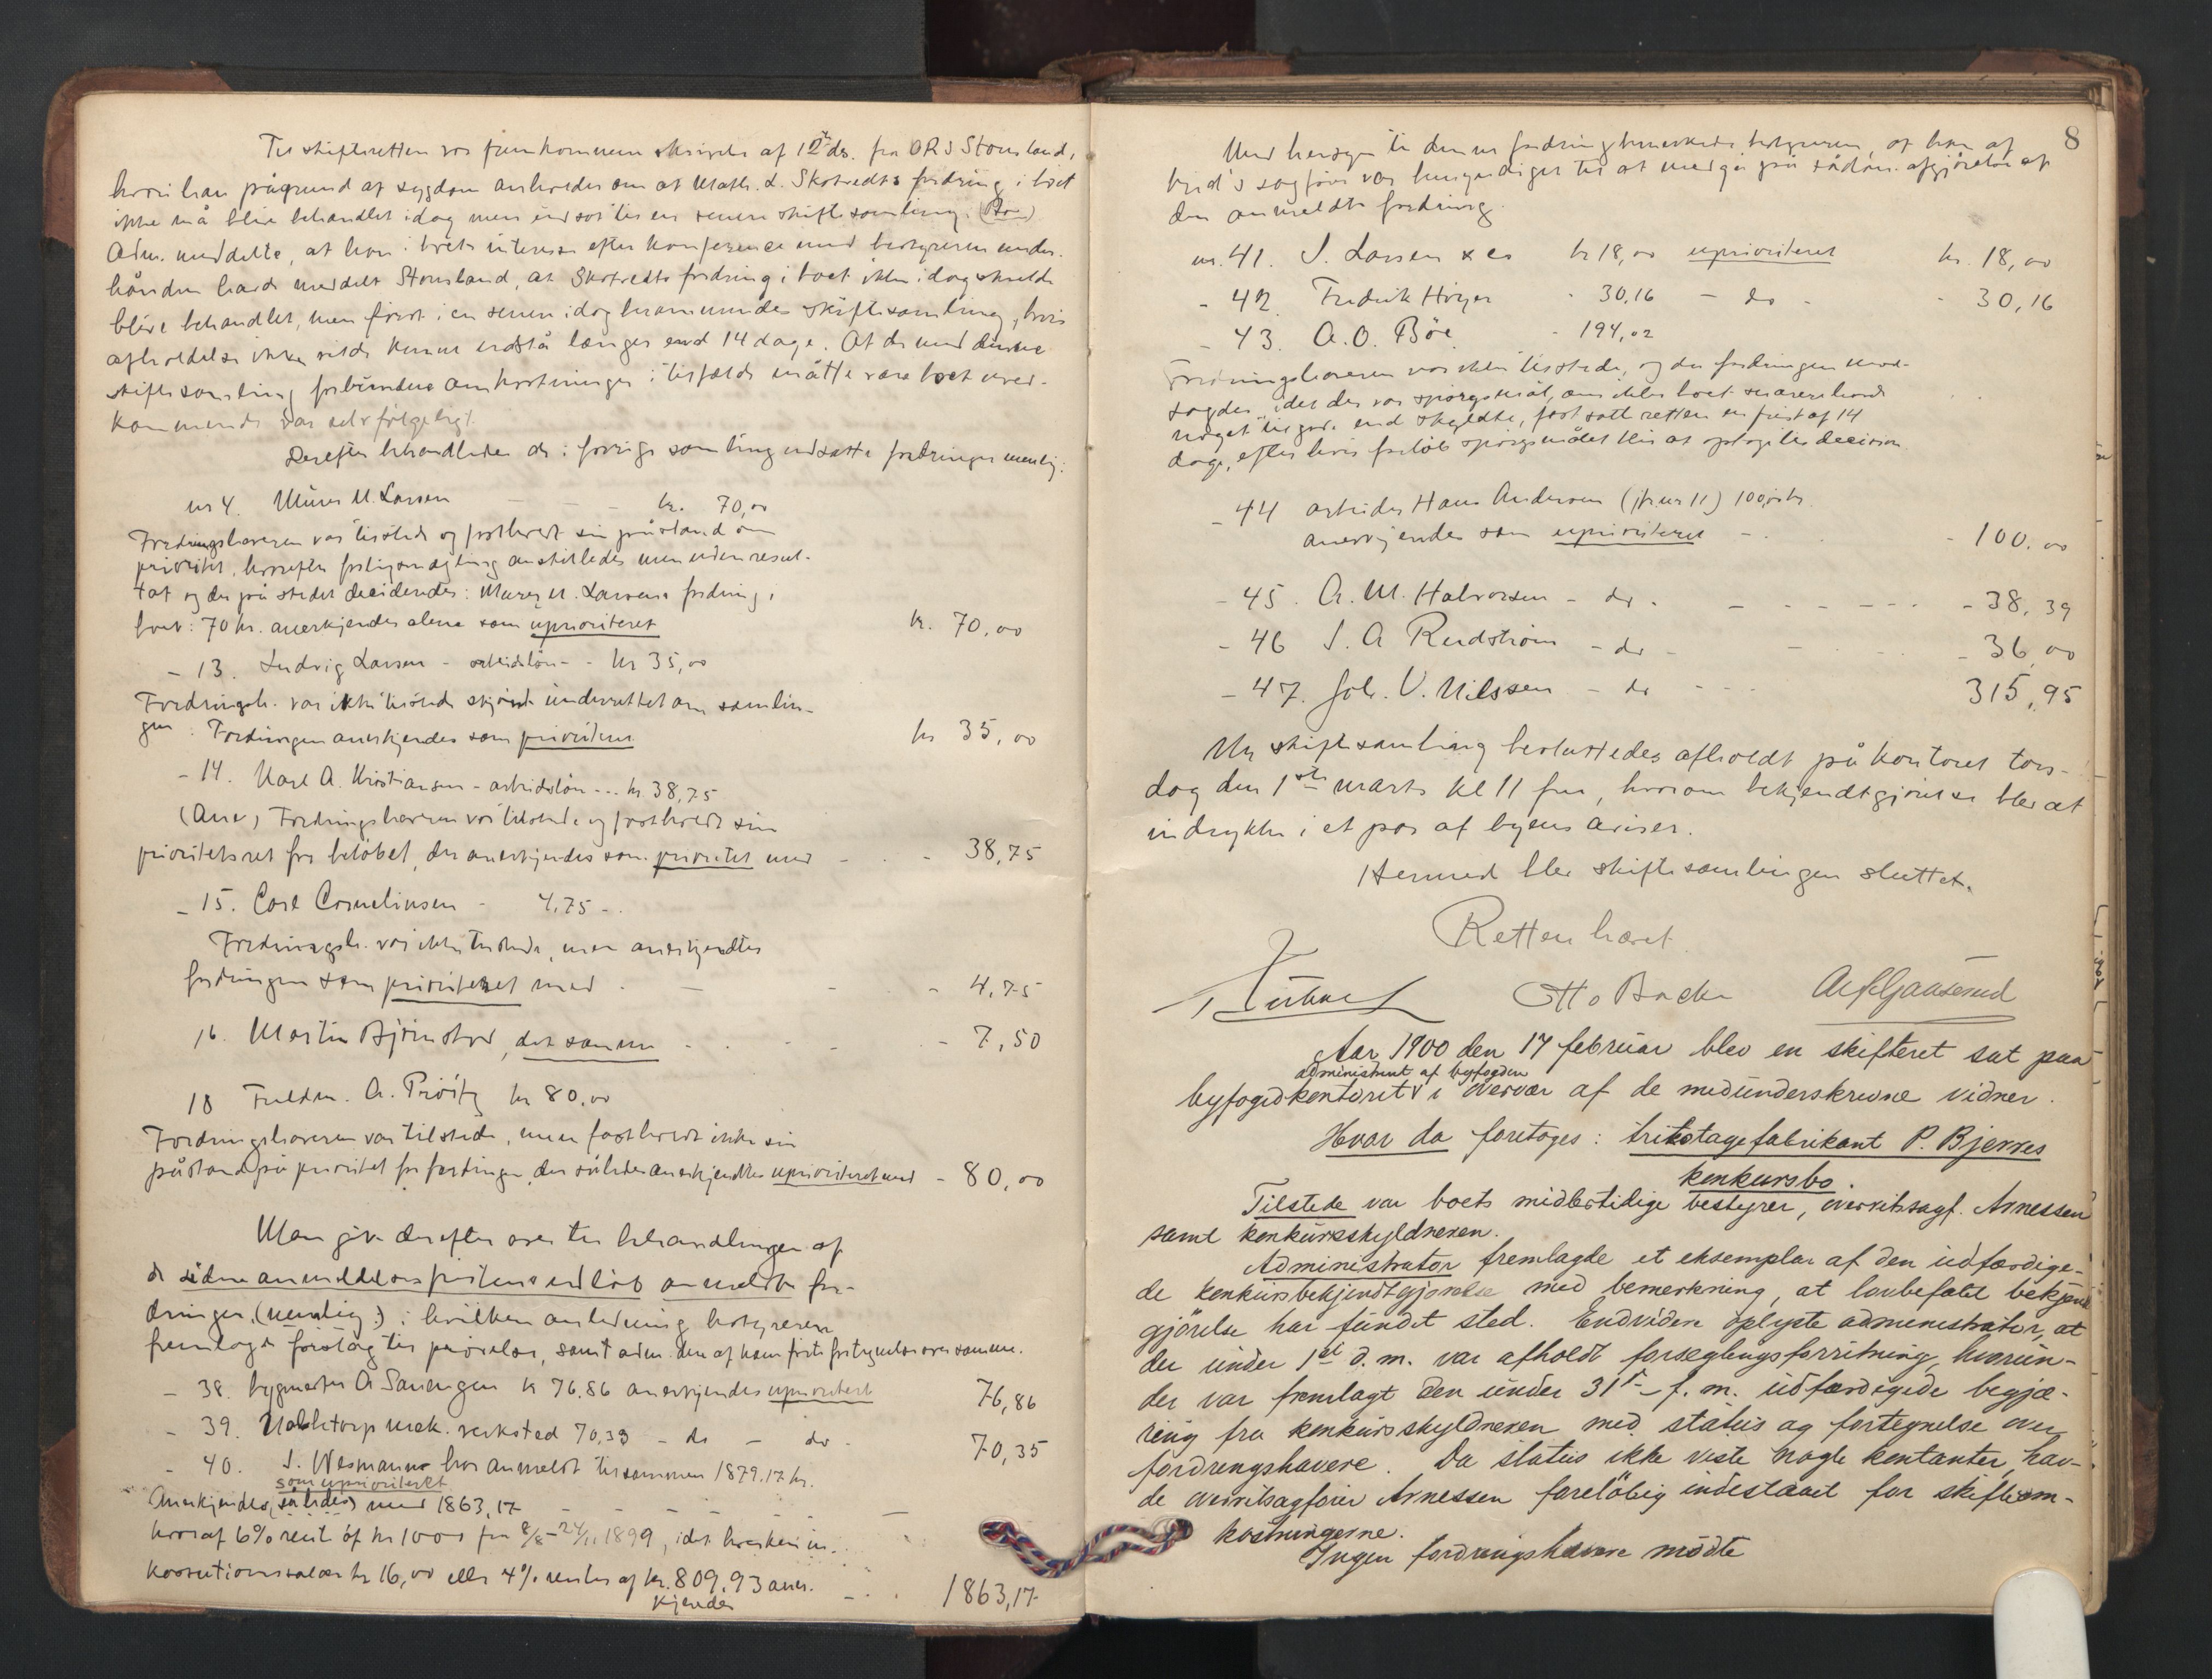 Til skifteretten var fremkommen skrivelse af 12te ds. fra ORS Stousland,
hvori han pågrund af sygdom anholder om at Math. L. Skotvedts fordring i boet
ikke må blive behandlet idag men udsat til en senere skiftesamling. (Bie)
Adm. meddelte, at han i boets interesse efter konference med bestyreren under-
hånden havde meddelt Stousland, at Skotvedts fordring i boet ikke idag skulde
blive behandlet, men først i en senere idag berammendes skiftesamling, hvis
afholdelse ikke vilde kunne udstå længer end 14 dage. At de med denne
skiftesamling forbundne omkostninger i tilfælde måtte være boet uved-
kommende var selvfølgeligt.
Derefter behandledes de i forrige samling udsatte fordringer nemlig:
nr 4. Murer M. Larsen - - kr. 70,00
Fordringshaveren var tilstede og fastholdt sin påstand om
prioritet, hvorefter forligsmægling anstilledes men uden resul-
tat og der på stedet decideredes: Murer M. Larsens fordring i
boet: 70 kr. anerkjendes alene som uprioriteret kr. 70,00
- 13. Ludvig Larsen - arbeidsløn - - kr 35,00
Fordringsh. var ikke tilstede skjønt underrettet om samlin-
gen. Fordringen anerkjendes som prioriteret kr 35,00
- 14. Karl A. Kristiansen - arbeidsløn - - - kr 38,75
(Anv) Fordringshaveren var tilstede og fastholdt sin
prioritetsret for beløbet, der anerkjendes som prioritet med - - 38,75
- 15. Carl Cornelinsen - 4,75 - .
Fordringsh. var ikke tilstede, men anerkjendtes
fordringen som prioriteret med - - - 4,75
16. Martin Bjørnstad, det samme - - - 7,50
18 Fuldm. A. Prøitz kr 80,00
Fordringshaveren var tilstede, men fastholdt ikke sin
påstand på prioritet for fordringen, der således anerkjendtes uprioriteret med - 80,00
Man gik derefter over til behandlingen af
de siden anmeldelsesfristens udløb anmeldte for-
dringer, (nemlig:) i hvilken anledning bestyreren
fremlagde forslag til prøvelse, samt adm. den af ham førte fortegnelse over samme.
- 38. bygmester A Sauengen kr 76,86 anerkjendes uprioritert 76,86
- 39. Nabbetorp mek. verksted 70,35 - do - do - 70,35
- 40. S. Wesmanns har anmeldt tilsammen 1879.17 kr.
som uprioriteret
Anerkjendes, således med 1863,17
hvoraf 6% rente af kr 1000 fra 8/8 - 24/11 1899, idet hverken in-
kassationssalær kr 16,00 eller 4% rentes af kr. 809.93 aner-
kjendes - . . 1863,17
8
Med hensyn til denne fordring bemærkede bestyreren, at han af
byrd's sagfører var bemyndiget til at medgå på sådan afgjørelse af
den anmeldte fordring.
nr. 41. S. Larsen & co kr 18,00 uprioriteret kr. 18,00
- 42. Fredrik Høyer - 30,16 - do - - 30,16
- 43. A. O. Bøe - 194,02
Fordringshaveren var ikke tilstede, og da fordringen mod-
sagdes, idet der var spørgsmål, om ikke boet snarere havde
noget tilgode end skyldte, fastsatte retten en frist af 14
dage, efter hvis forløb spørgsmålet blir at optage til decision.
- 44 arbeider Hans Andersen (jfr nr 11) 100 kr.
anerkjendes som uprioriteret - . - 100.00
- 45. A. M. Halvorsen - do . - - - - - 38,39
- 46 S. A Rendstrøm - do - - - - 36,00
- 47. Joh. V. Nilssen - do - - - 315,95
Ny skiftesamling besluttedes afholdt på kontoret tors-
dag den 1ste marts kl 11 fm, hvorom bekjendtgjørelse blev at
indrykke i et par af byens aviser.
Hermed blev skiftesamlingen sluttet.
Retten hævet.
Otto Backe
Aar 1900 den 17 februar blev en skifteret sat paa
administreret af byfogden
byfogedkontoret i overvær af de medunderskrevne vidner.
Hvor da foretoges: trikotagefabrikant P. Bjerkes
konkursbo.
Tilstede var boets midlertidige bestyrer, overretssagf. Arnessen
samt konkursskyldneren.
Administrator fremlagde et eksemplar af den udfærdige-
de konkursbekjendtgjørelse med bemerkning, at lovbefalet bekjend-
gjørelse har fundet sted. Endvidere oplyste administrator, at
der under 1st d. m. var afholdt forseglingsforretning, hvorun-
der var fremlagt den under 31te f. m. udfærdigede begjæ-
ring fra konkursskyldneren med status og fortegnelse over
fordringshavere. Da status ikke viste nogle kontanter, hav-
de overretssagfører Arnessen foreløbig indestaaet for skifteom-
kostningerne.
Ingen fordringshavere mødte